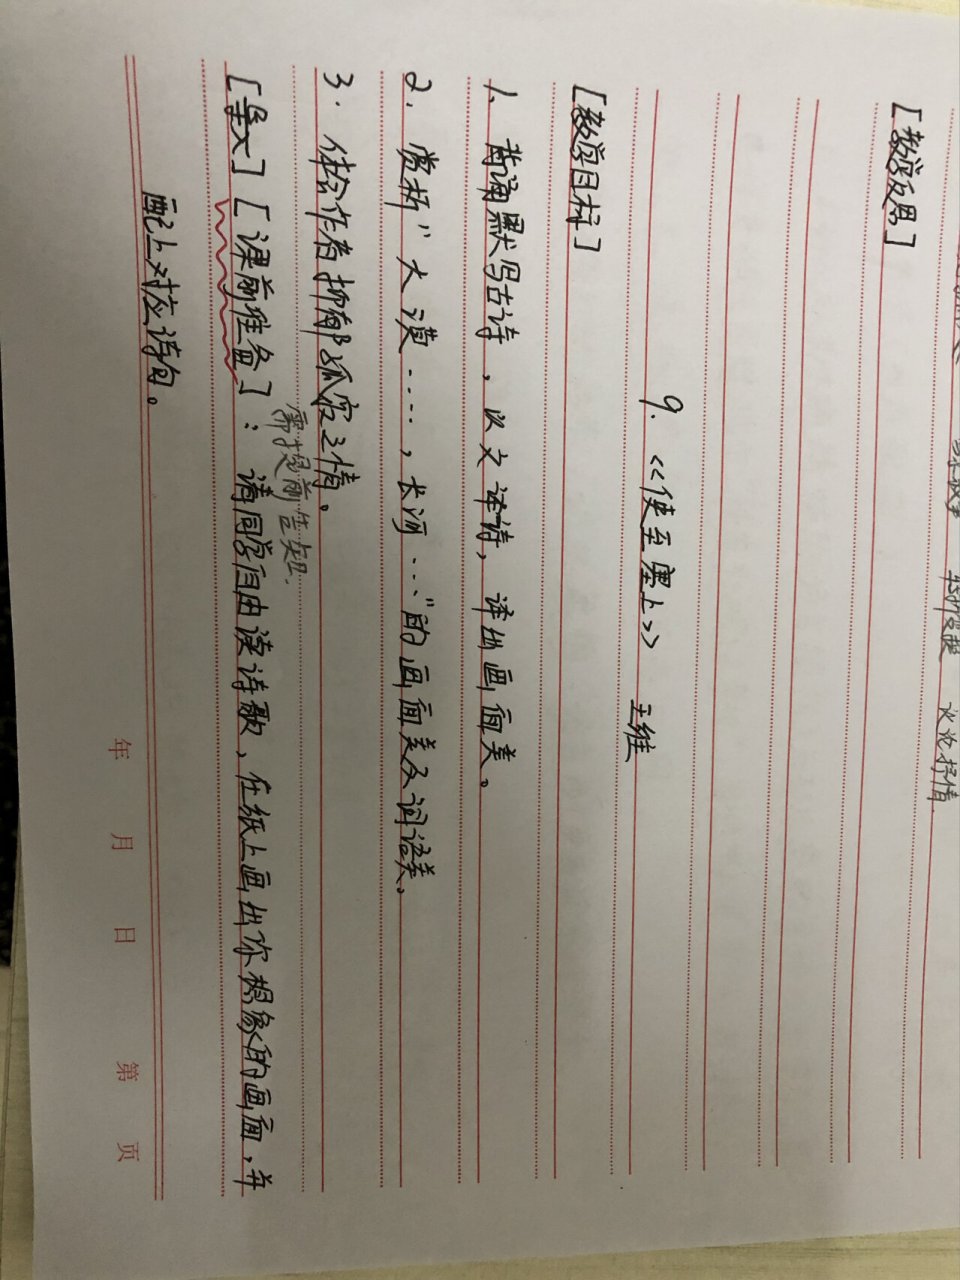 议论抒情
[教学反思]
9. 《使至塞上》 王维
[教学目标]
1、背诵默写古诗，以文译诗，译出画面美。
2. 赏析"大漠....，长河...."的画面美及词语美。
3. 体会作者抑郁孤寂之情。
需提前告知.
[导入] [课前准备]：请同学自由读诗歌、在纸上画出你想象的画面，并
配上对应诗句。
年 月 日 第 页